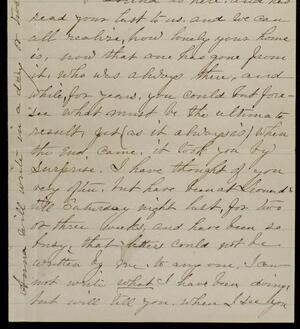 is here, and has
read your last to us, and we can
all realize, how lonely your home
is, now that one has gone from
it, who was always there, and
while, for years, you could but fore-
see what must be the ultimate
result, yet (as it always is) when
the end, came, it took you by
surprise. I have thought of you
very often, but have been at
till Saturday night last, for two
or three weeks, and have been so
busy, that letters could not be
written by me to any one, I can
not write what I have been doing,
but will tell you, when I see you
Anna will write in a day or two